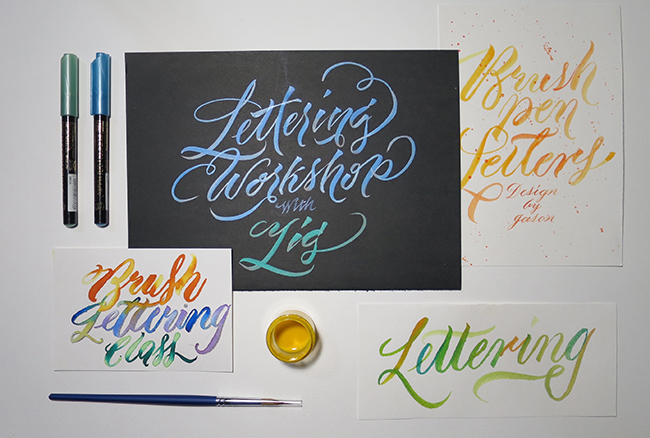 Lettering
Workshop
with
Lig
Brush
pen
Letters
Design
by
Jason
Brush
Lettering
Class
Lettering